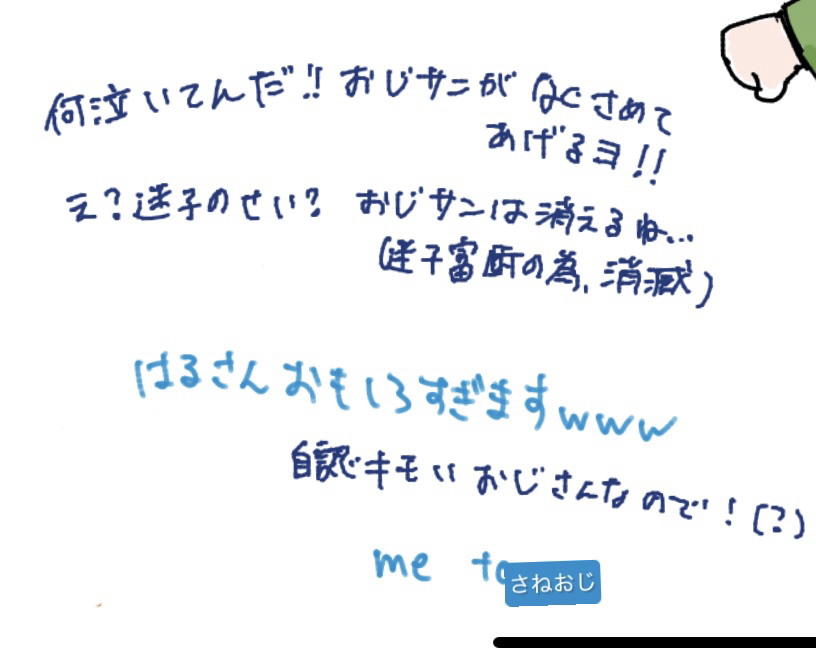 何泣いてんだ!! おじサンが なぐさめて
あげるヨ!!
え?迷子のせい? おじサンは消えるね...
(迷子富町の為、消滅)
はるさんおもしろすぎますwww
自認でキモいおじさんなので!(?)
me
さねおじ